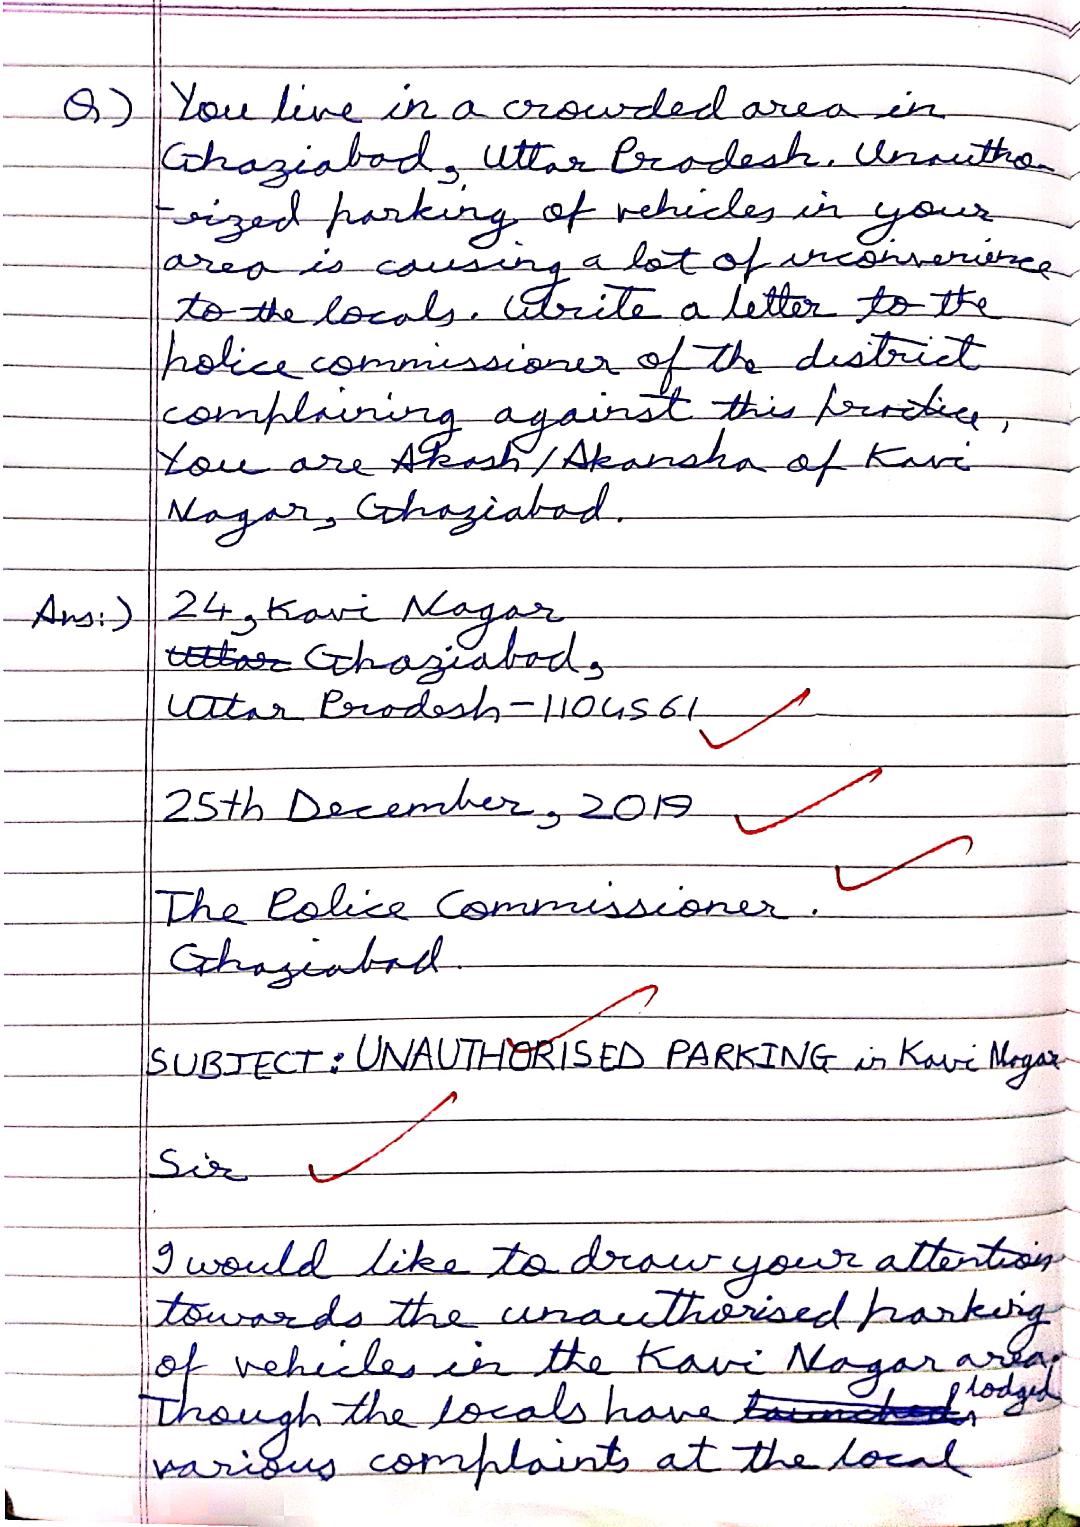 Q) You live in a crowded area in
Ghaziabad, Uttar Pradesh. Unautho-
-rized parking of vehicles in your
area is causing a lot of inconvenience
to the locals. Write a letter to the
police commissioner of the district
complaining against this practice,
You are Akash/Akansha of Kavi
Nagar, Ghaziabad.
Ans:) 24, Kavi Nagar
Uttar Ghaziabad,
Uttar Pradesh-1104561
25th December, 2019
The Police Commissioner.
Ghaziabad.
SUBJECT: UNAUTHORISED PARKING in Kavi Nagar
Sir
I would like to draw your attention
towards the unauthorised parking
of vehicles in the Kavi Nagar area.
Though the locals have launched lodged
various complaints at the local